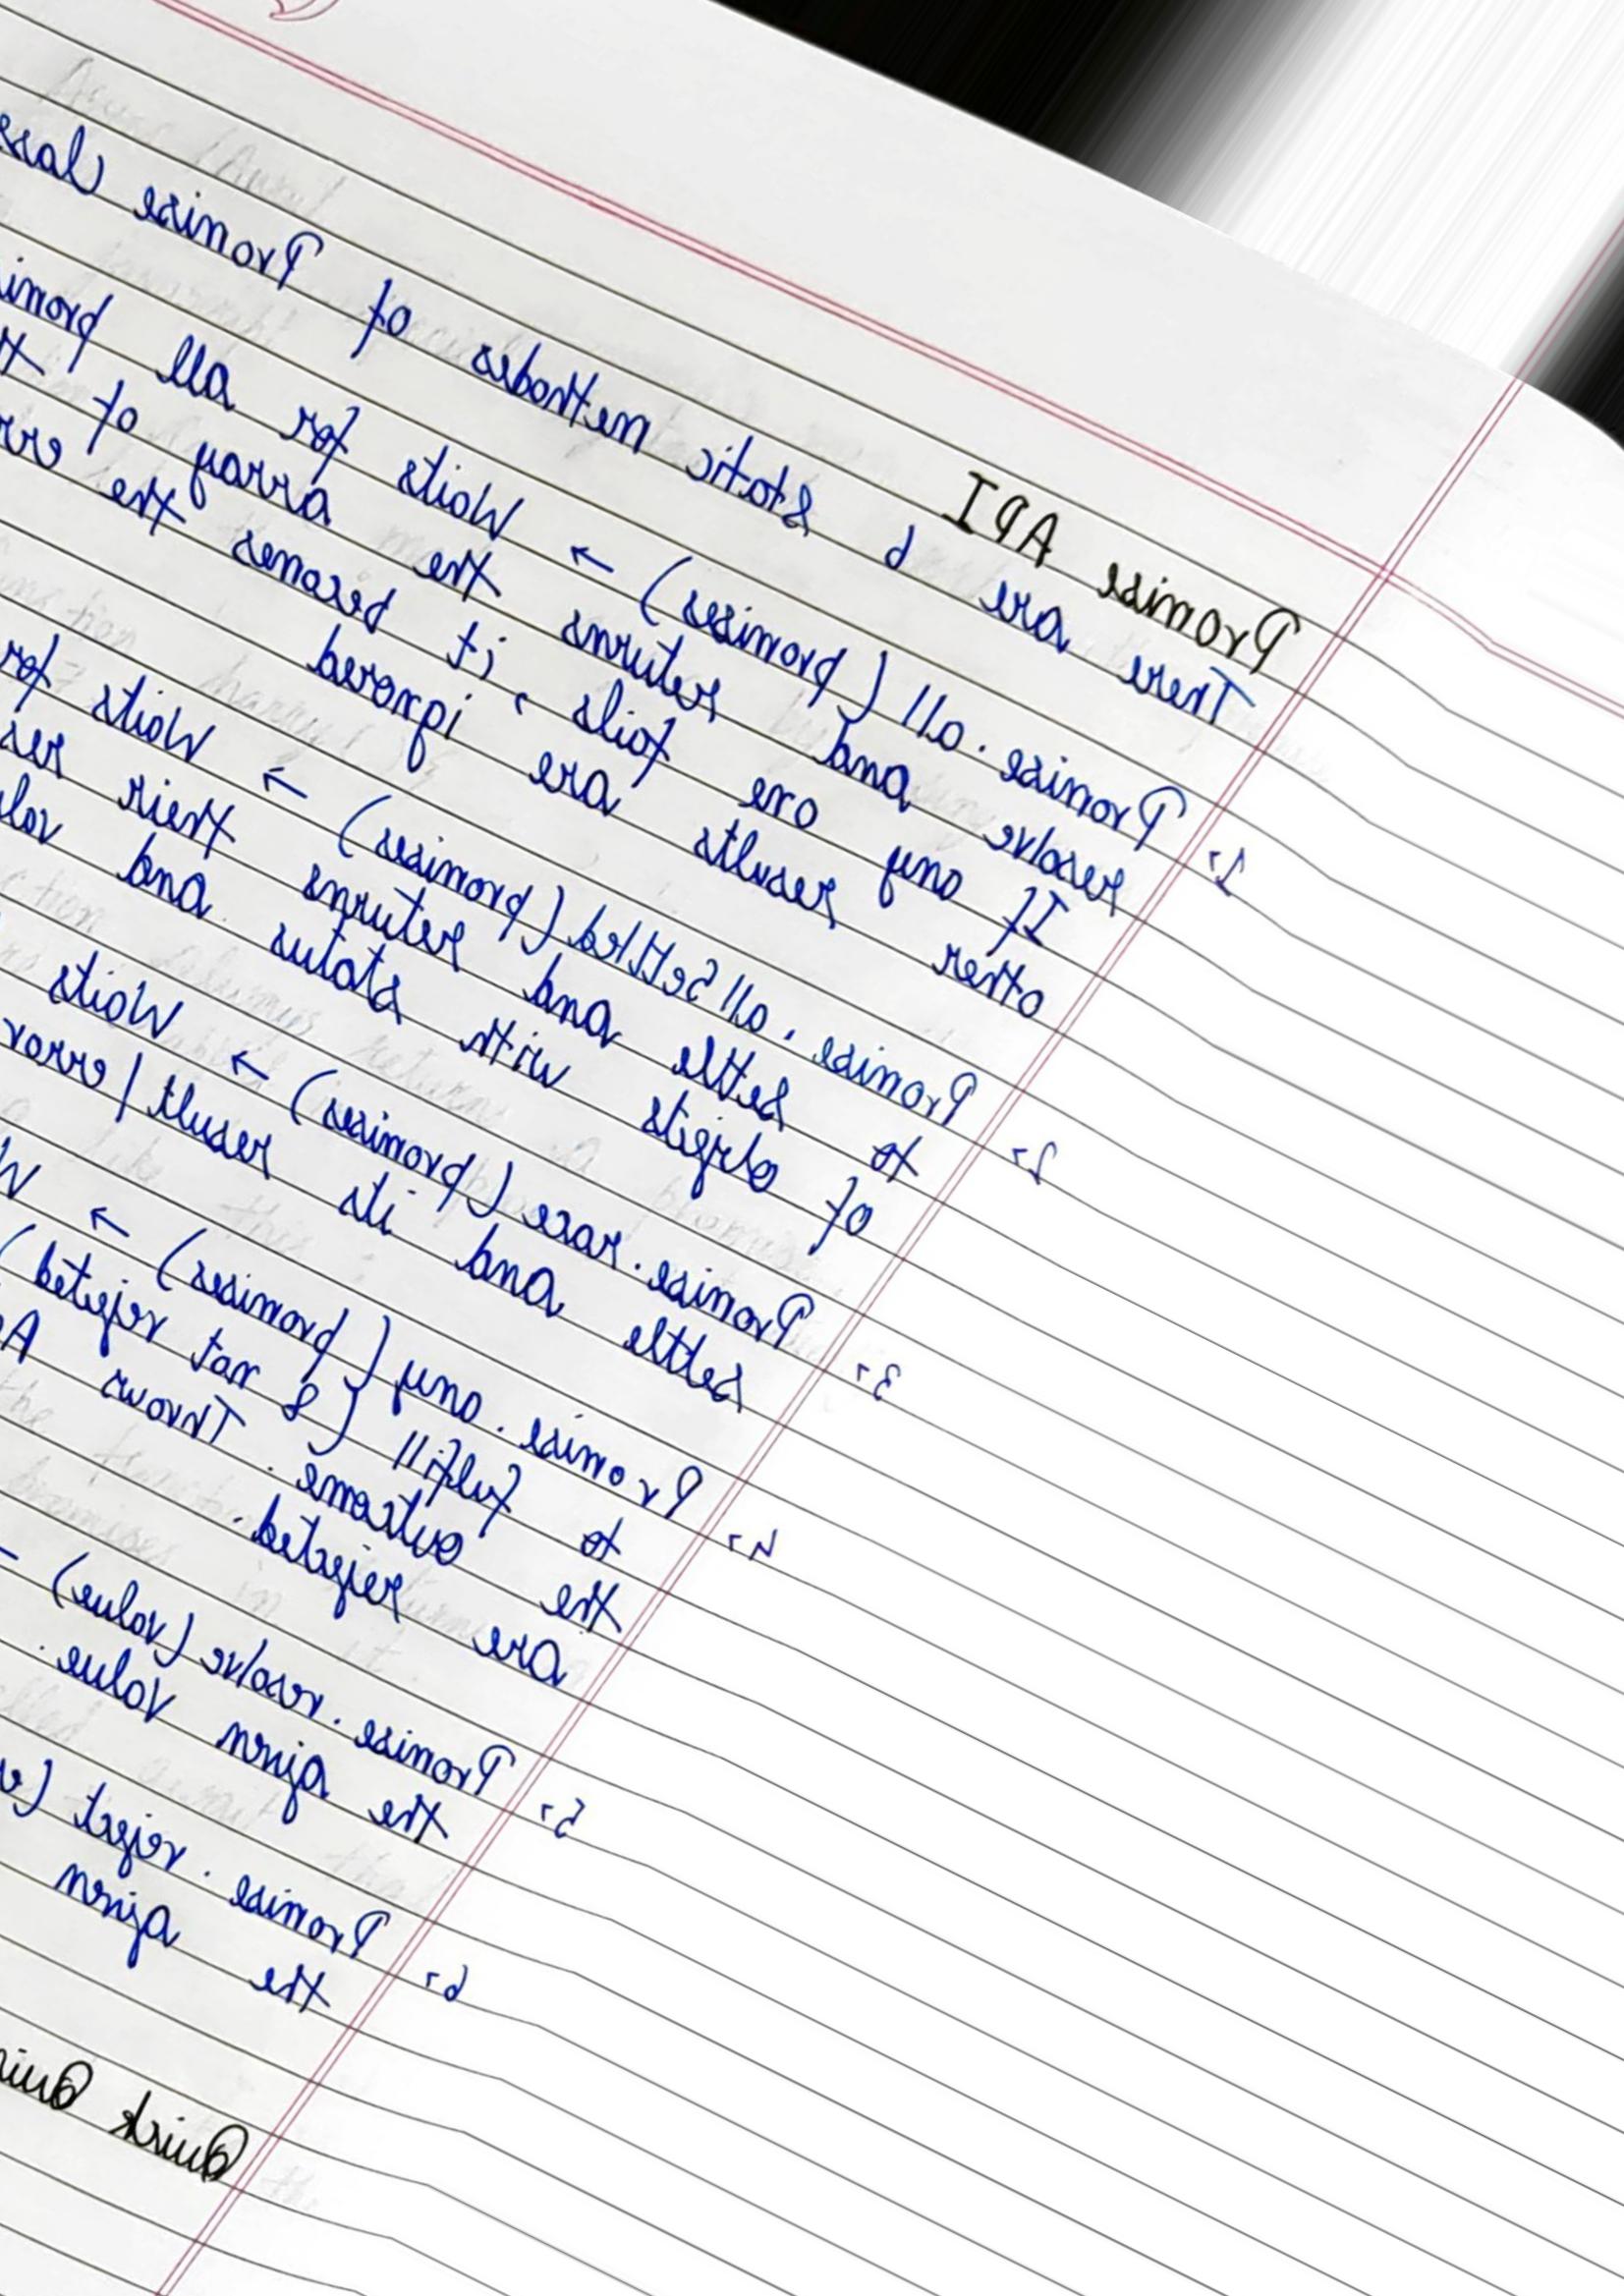 Promise API
There are 6 static methods of Promise
1, Promise.all (promises) → Waits for all
resolve and returns the array of
If any one fails, it becomes the
other results are ignored
2, Promise.allSettled (promises) → Waits for
to settle and returns their
of objects with status and
3, Promise.race (promises) → Waits
settle and its result / error
4, Promise.any (promises) →
to fulfill (& not rejected)
the outcome. Throws
are rejected.
5, Promise.resolve (value)
the given value.
6, Promise.reject
the given
Quick